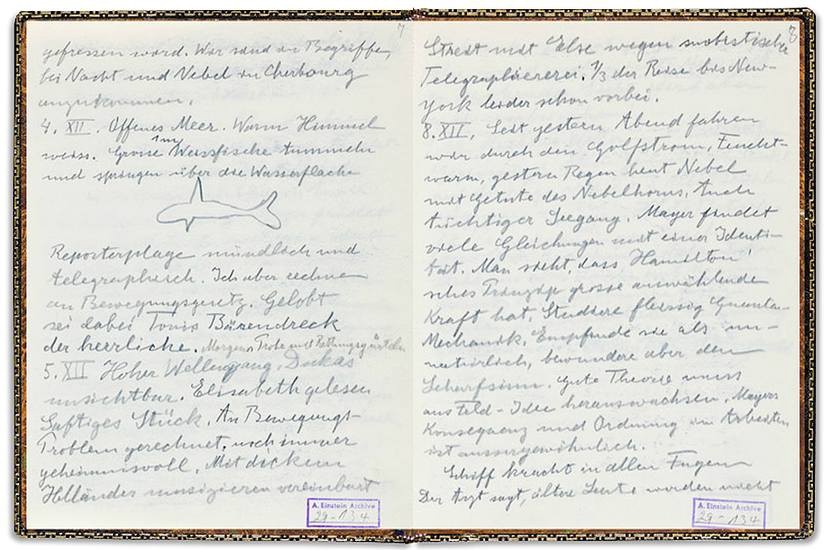 7
gefressen word. War sind in Begriffe,
bei Nacht und Nebel in Cherbourg
anzukommen.
4. XII. Offenes Meer. Warm Himmel
weiss. Grosse 1m Weissfische tummeln
und springen über die Wasserfläche
Reporterplage mündlich und
telegraphisch. Ich aber rechne
an Bewegungsgesetz. Gelobt
sei dabei Tonis Bärendreck
der herrliche. Morgens Probe mit Rettungsgürteln
5. XII Hoher Wellengang. Dukas
unsichtbar. Elisabeth gelesen
Saftiges Stück. An Bewegungs-
Problem gerechnet, noch immer
geheimnisvoll. Mit dickem
Holländer musizieren vereinbart
A. Einstein Archive
29-134
8
Streit mit Else wegen snobistische
Telegraphiererei. 1/3 der Reise bis New-
York leider schon vorbei.
8. XII. Seit gestern Abend fahren
wir durch den Golfstrom, Feucht-
warm, gestern Regen heut Nebel
mit Getute des Nebelhorns, Auch
tüchtiger Seegang. Mayer findet
viele Gleichungen mit einer Identi-
tät. Man sieht, dass Hamilton'
sches Prinzip grosse auswählende
Kraft hat. Studiere fleissig Quanten-
Mechanik. Empfinde sie als un-
natürlich, bewundere aber den
Scharfsinn. Gute Theorie muss
aus Feld-Idee herauswachsen. Mayers
Konsequenz und Ordnung im Arbeiten
ist aussergewöhnlich.
Schiff kracht in allen Fugen
Der Arzt sagt, ältere Leute werden nicht
A. Einstein Archive
29-134